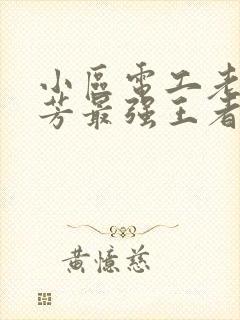 小區電工老
芳最强王者
黃憶慈